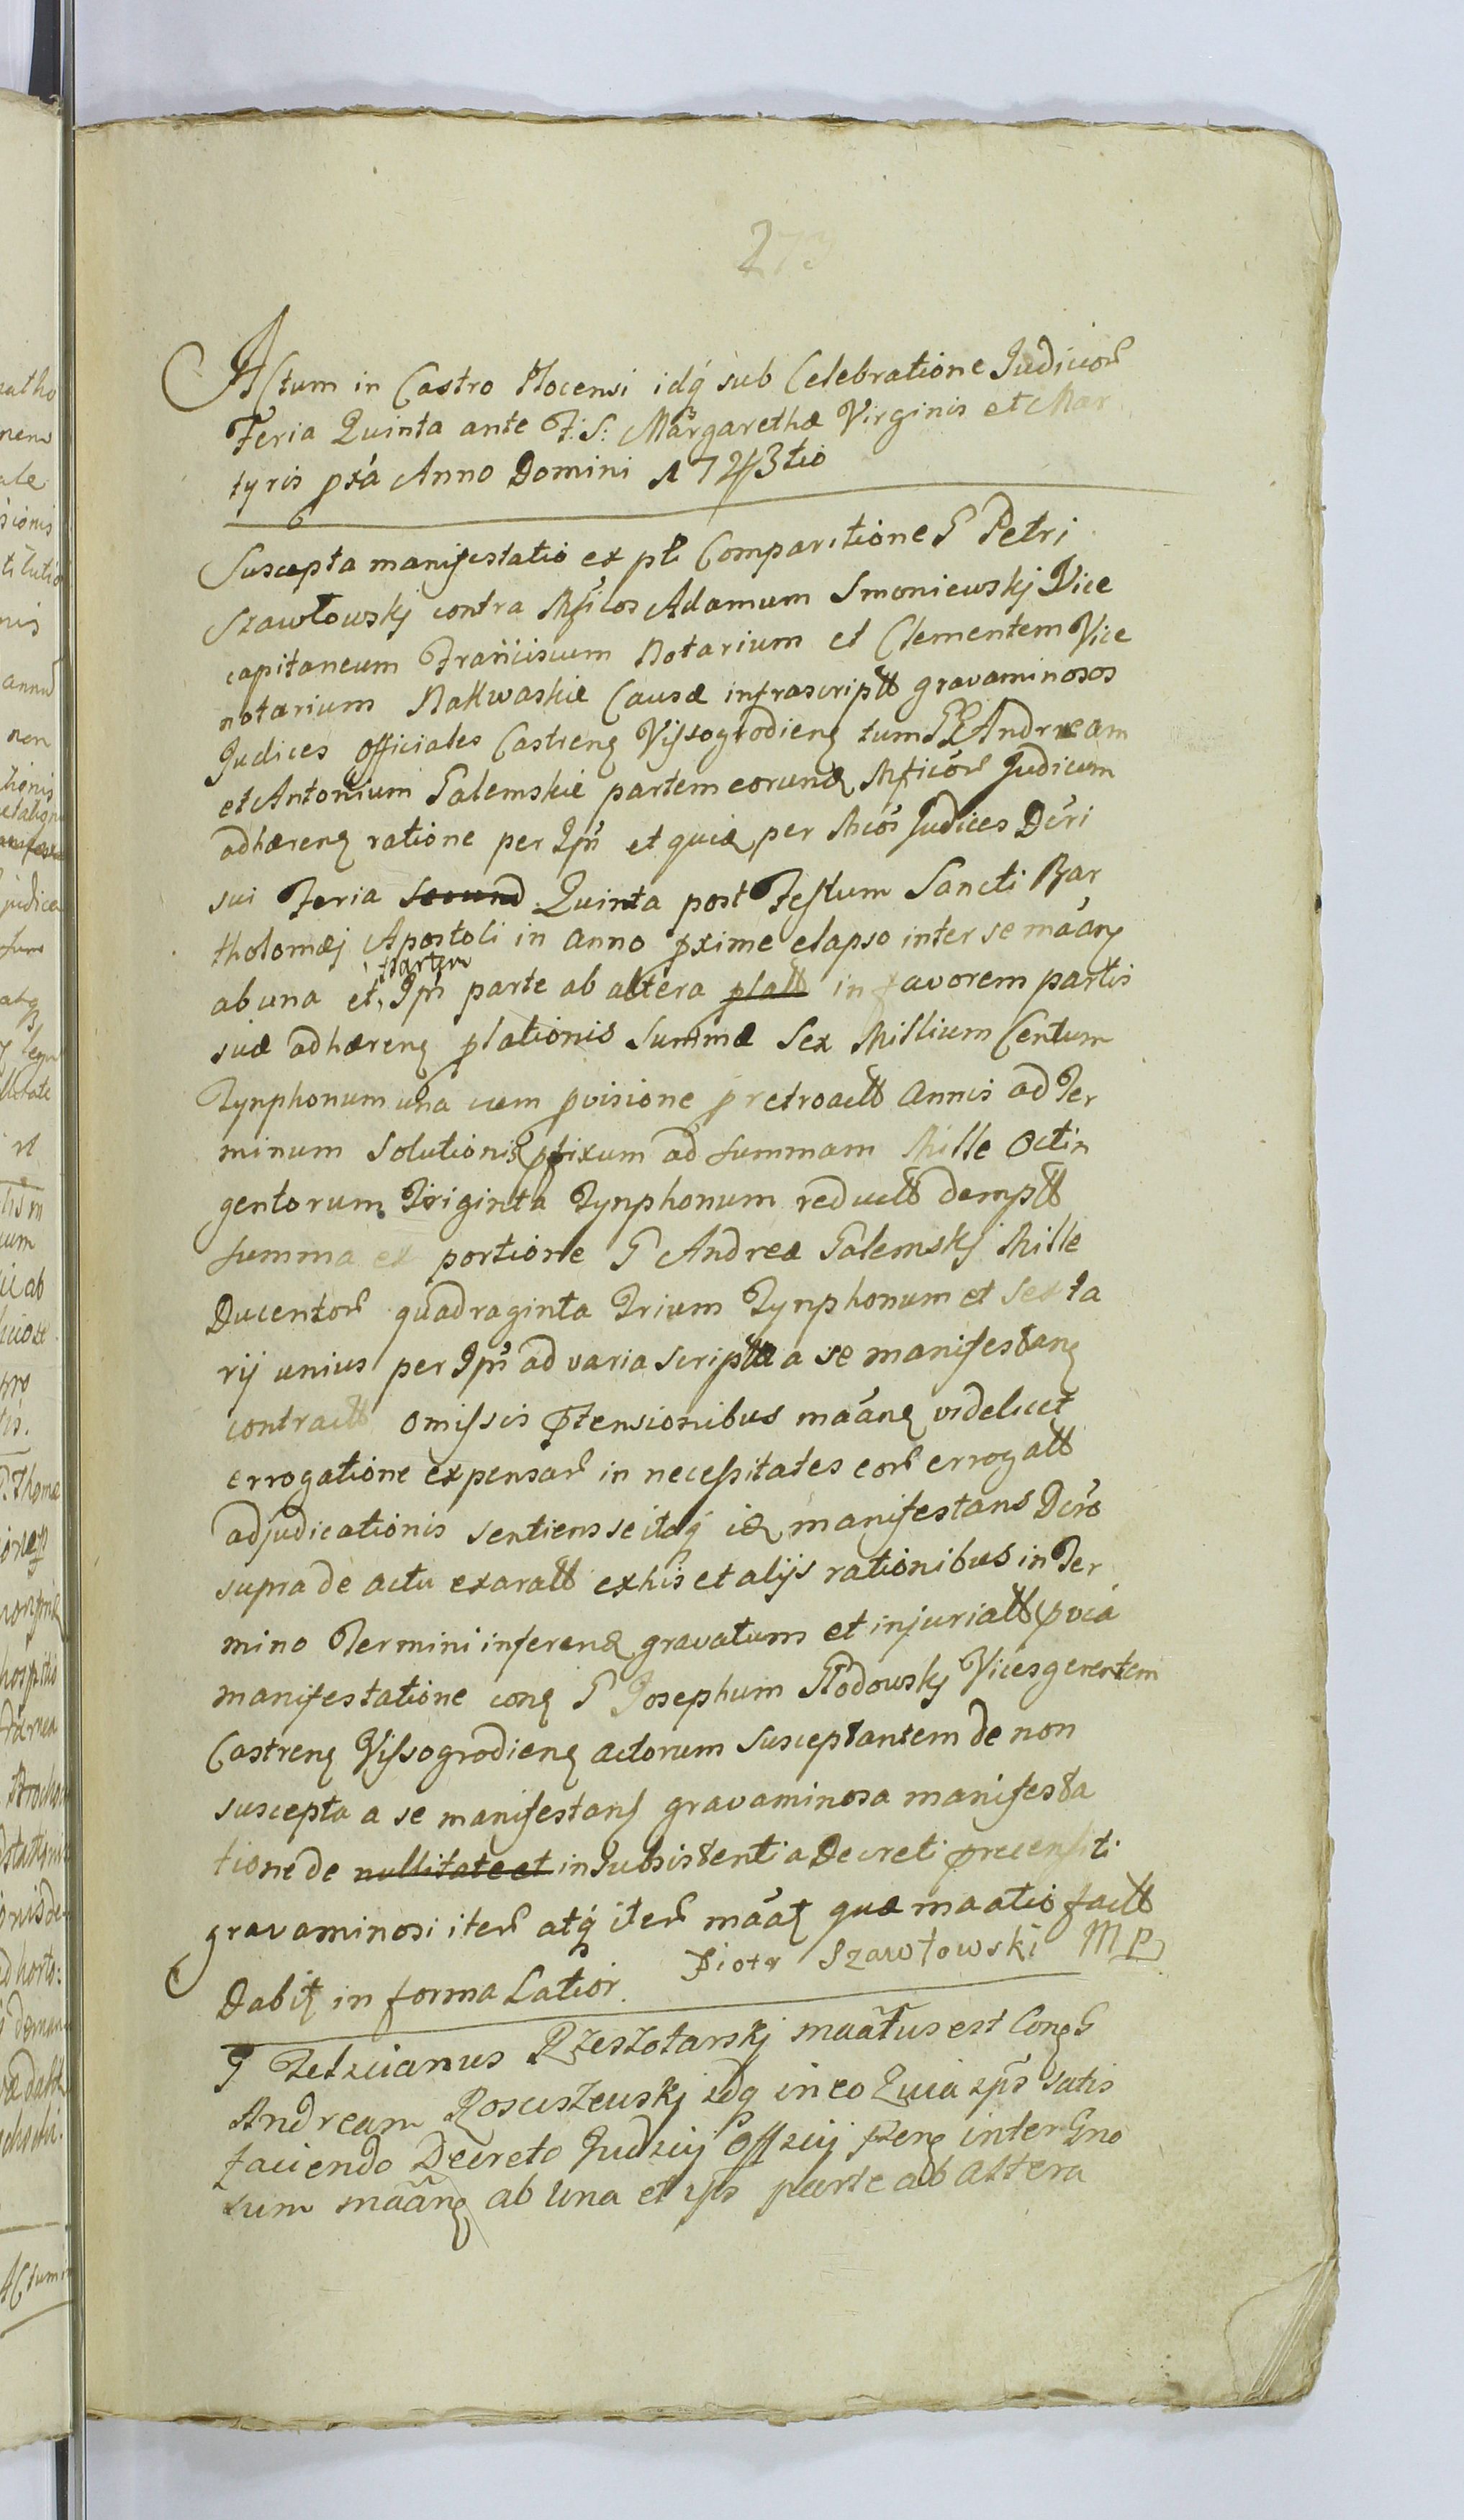 273
Actum in Castro Plocensi idq́ sub Celebratione Judicior̃
Feria Quinta ante F: S: Margarethæ Virginis et Mar
tyris pxá Anno Domini 1743tio
Suscepta manifestatio ex pti Comparitione G Petri
Szawłowskj contra Mfićos Adamum Smoniewskj Vice
capitaneum Franciscum Notarium et Clementem Vice
notarium Nakwaskie Causæ infrascriptt gravaminosos
Judices Officiales Castrenę Vissogrodienę tum GG Andream
et Antonium Galemskie partem eorundę Mficór̃ Judicum
adhærenę ratione per Ipm̃ et quia per Mcós Judices Dcŕi
sui Feria Secund Quinta post Festum Sancti Bar
tholomæj Apostoli in anno pxime elapso inter se maánę
ab una et partem Ipm̃ parte ab altera platt in favorem partis
suæ adhærenę plationis Summæ Sex Millium Centum
Tynphonum una cum pvisione p retroactt Annis ad Ter
minum Solutionis pfixum ad summam Mille Octin
gentorum Triginta Tynphonum reductt demptt
summa ex portione G Andreæ Galemskj Mille
Ducentor̃ quadraginta Trium Tynphonum et Sexta
rij unius per Ipm̃ ad varia scripta a se manifestanę
contractt omissis Ptensionibus maánę videlicet
errogatione expensar̃ in necessitates eor̃ errogatt
adjudicationis sentiens se itaq́ idę manifestans Dcŕo
supra de actu exaratt ex his et alijs rationibus in Ter
mino Termini inferendę gravatum et injuriatt pviá
manifestatione conę G Josephum Płodowskj Vicesgerentem
Castrenę Vissogrodienę actorum susceptantem de non
suscepta a se manifestanę gravaminosa manifesta
tione de nullitate et insubsistentia Decreti precensiti
gravaminosi iter̃ atq́ iter̃ maátę quæ maatio factt
Dabitę in forma Latiori. Piotr Szawłowski MP
G Felicianus Rzeszotarskj maãtus est Conę G
Andream Rosciszewskj idq in eo Quia ipś satis
faciendo Decreto Judicij Officij pzenę inter Gno
sum maãnę ab Una et ipś parte ab altera